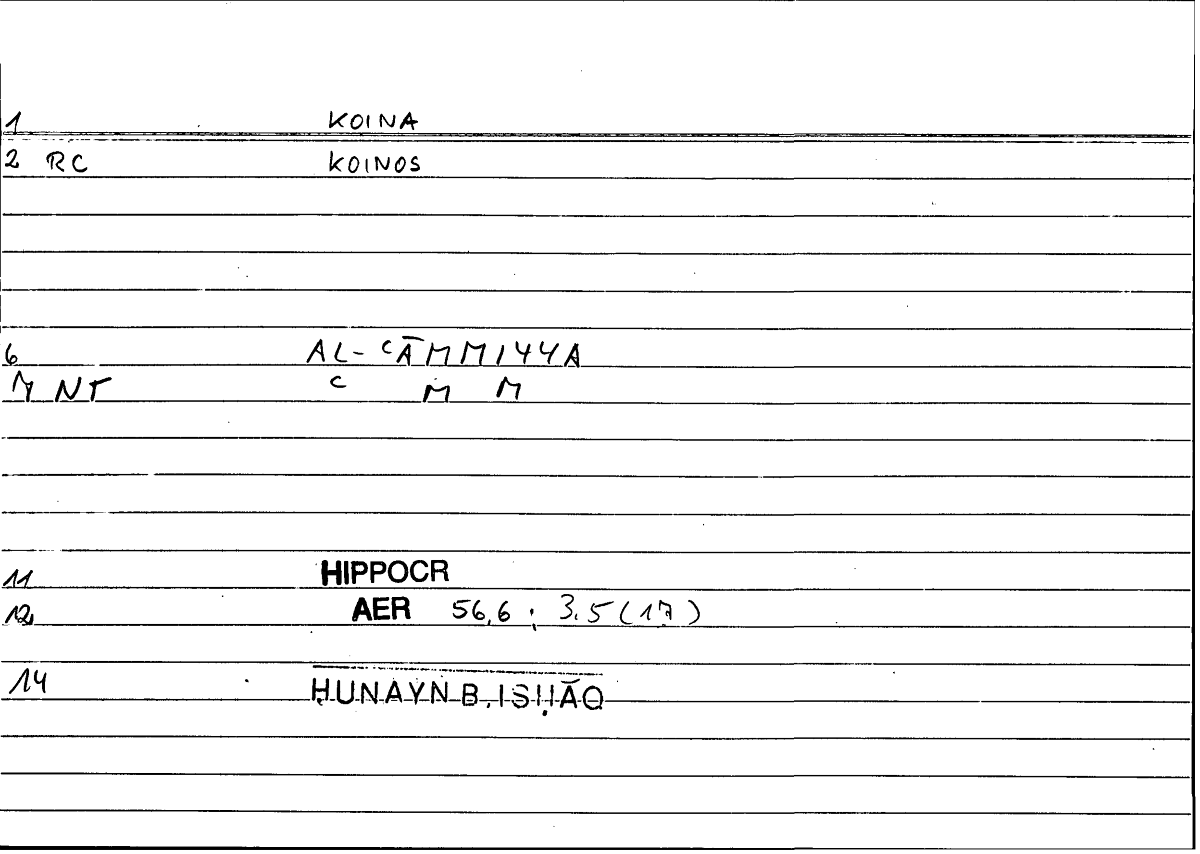 1 KOINA
2 RC KOINOS
6 AL-ʿĀMMIYYA
7 NT ʿ M M
11 HIPPOCR
12 AER 56,6 ; 3.5 (17)
14 ḤUNAYN B. ISḤĀQ